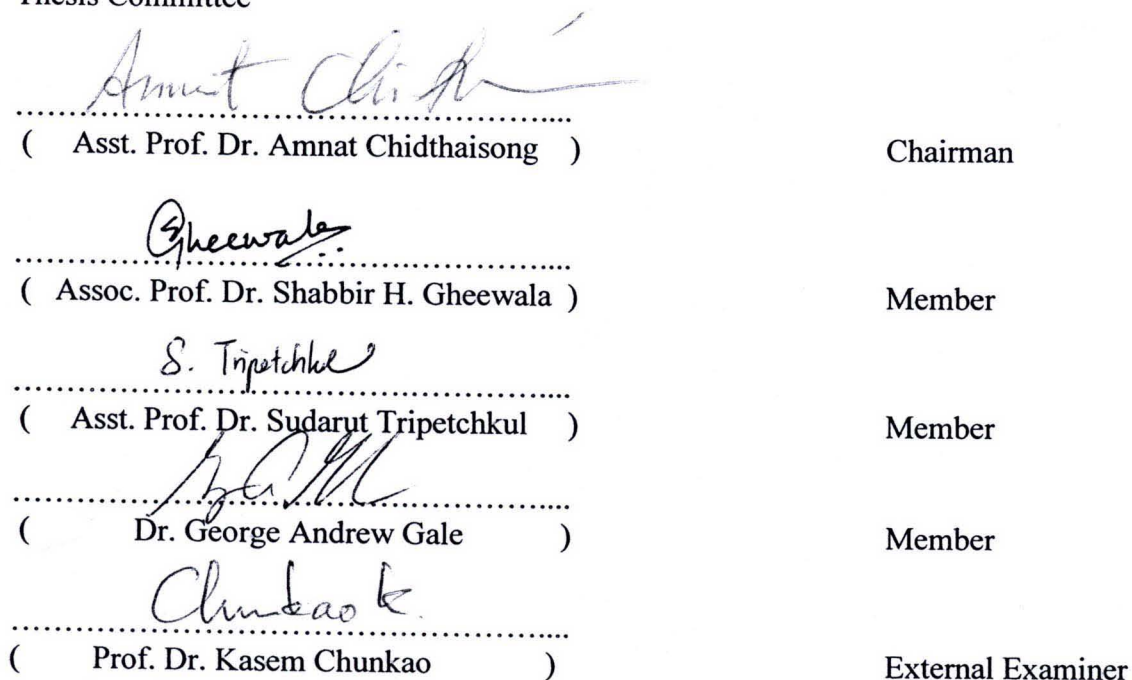 Thesis Committee
Amnat Chi
( Asst. Prof. Dr. Amnat Chidthaisong ) Chairman
Gheewala
( Assoc. Prof. Dr. Shabbir H. Gheewala ) Member
S. Tripetchkul
( Asst. Prof. Dr. Sudarut Tripetchkul ) Member
( Dr. George Andrew Gale ) Member
Chunkao K.
( Prof. Dr. Kasem Chunkao ) External Examiner